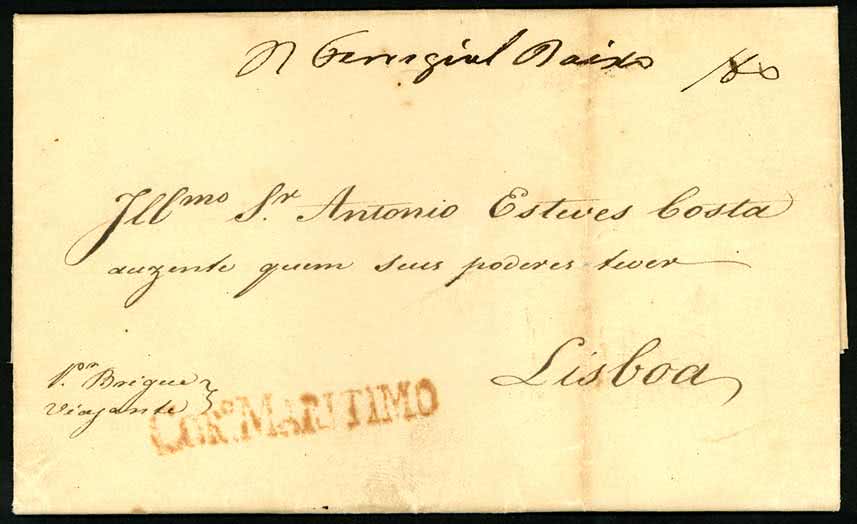 Baixo
Illmo Sr. Antonio Esteves Costa
auzente quem seus poderes tever
Lisboa
Por Brigue
Viajante
COR.º MARITIMO